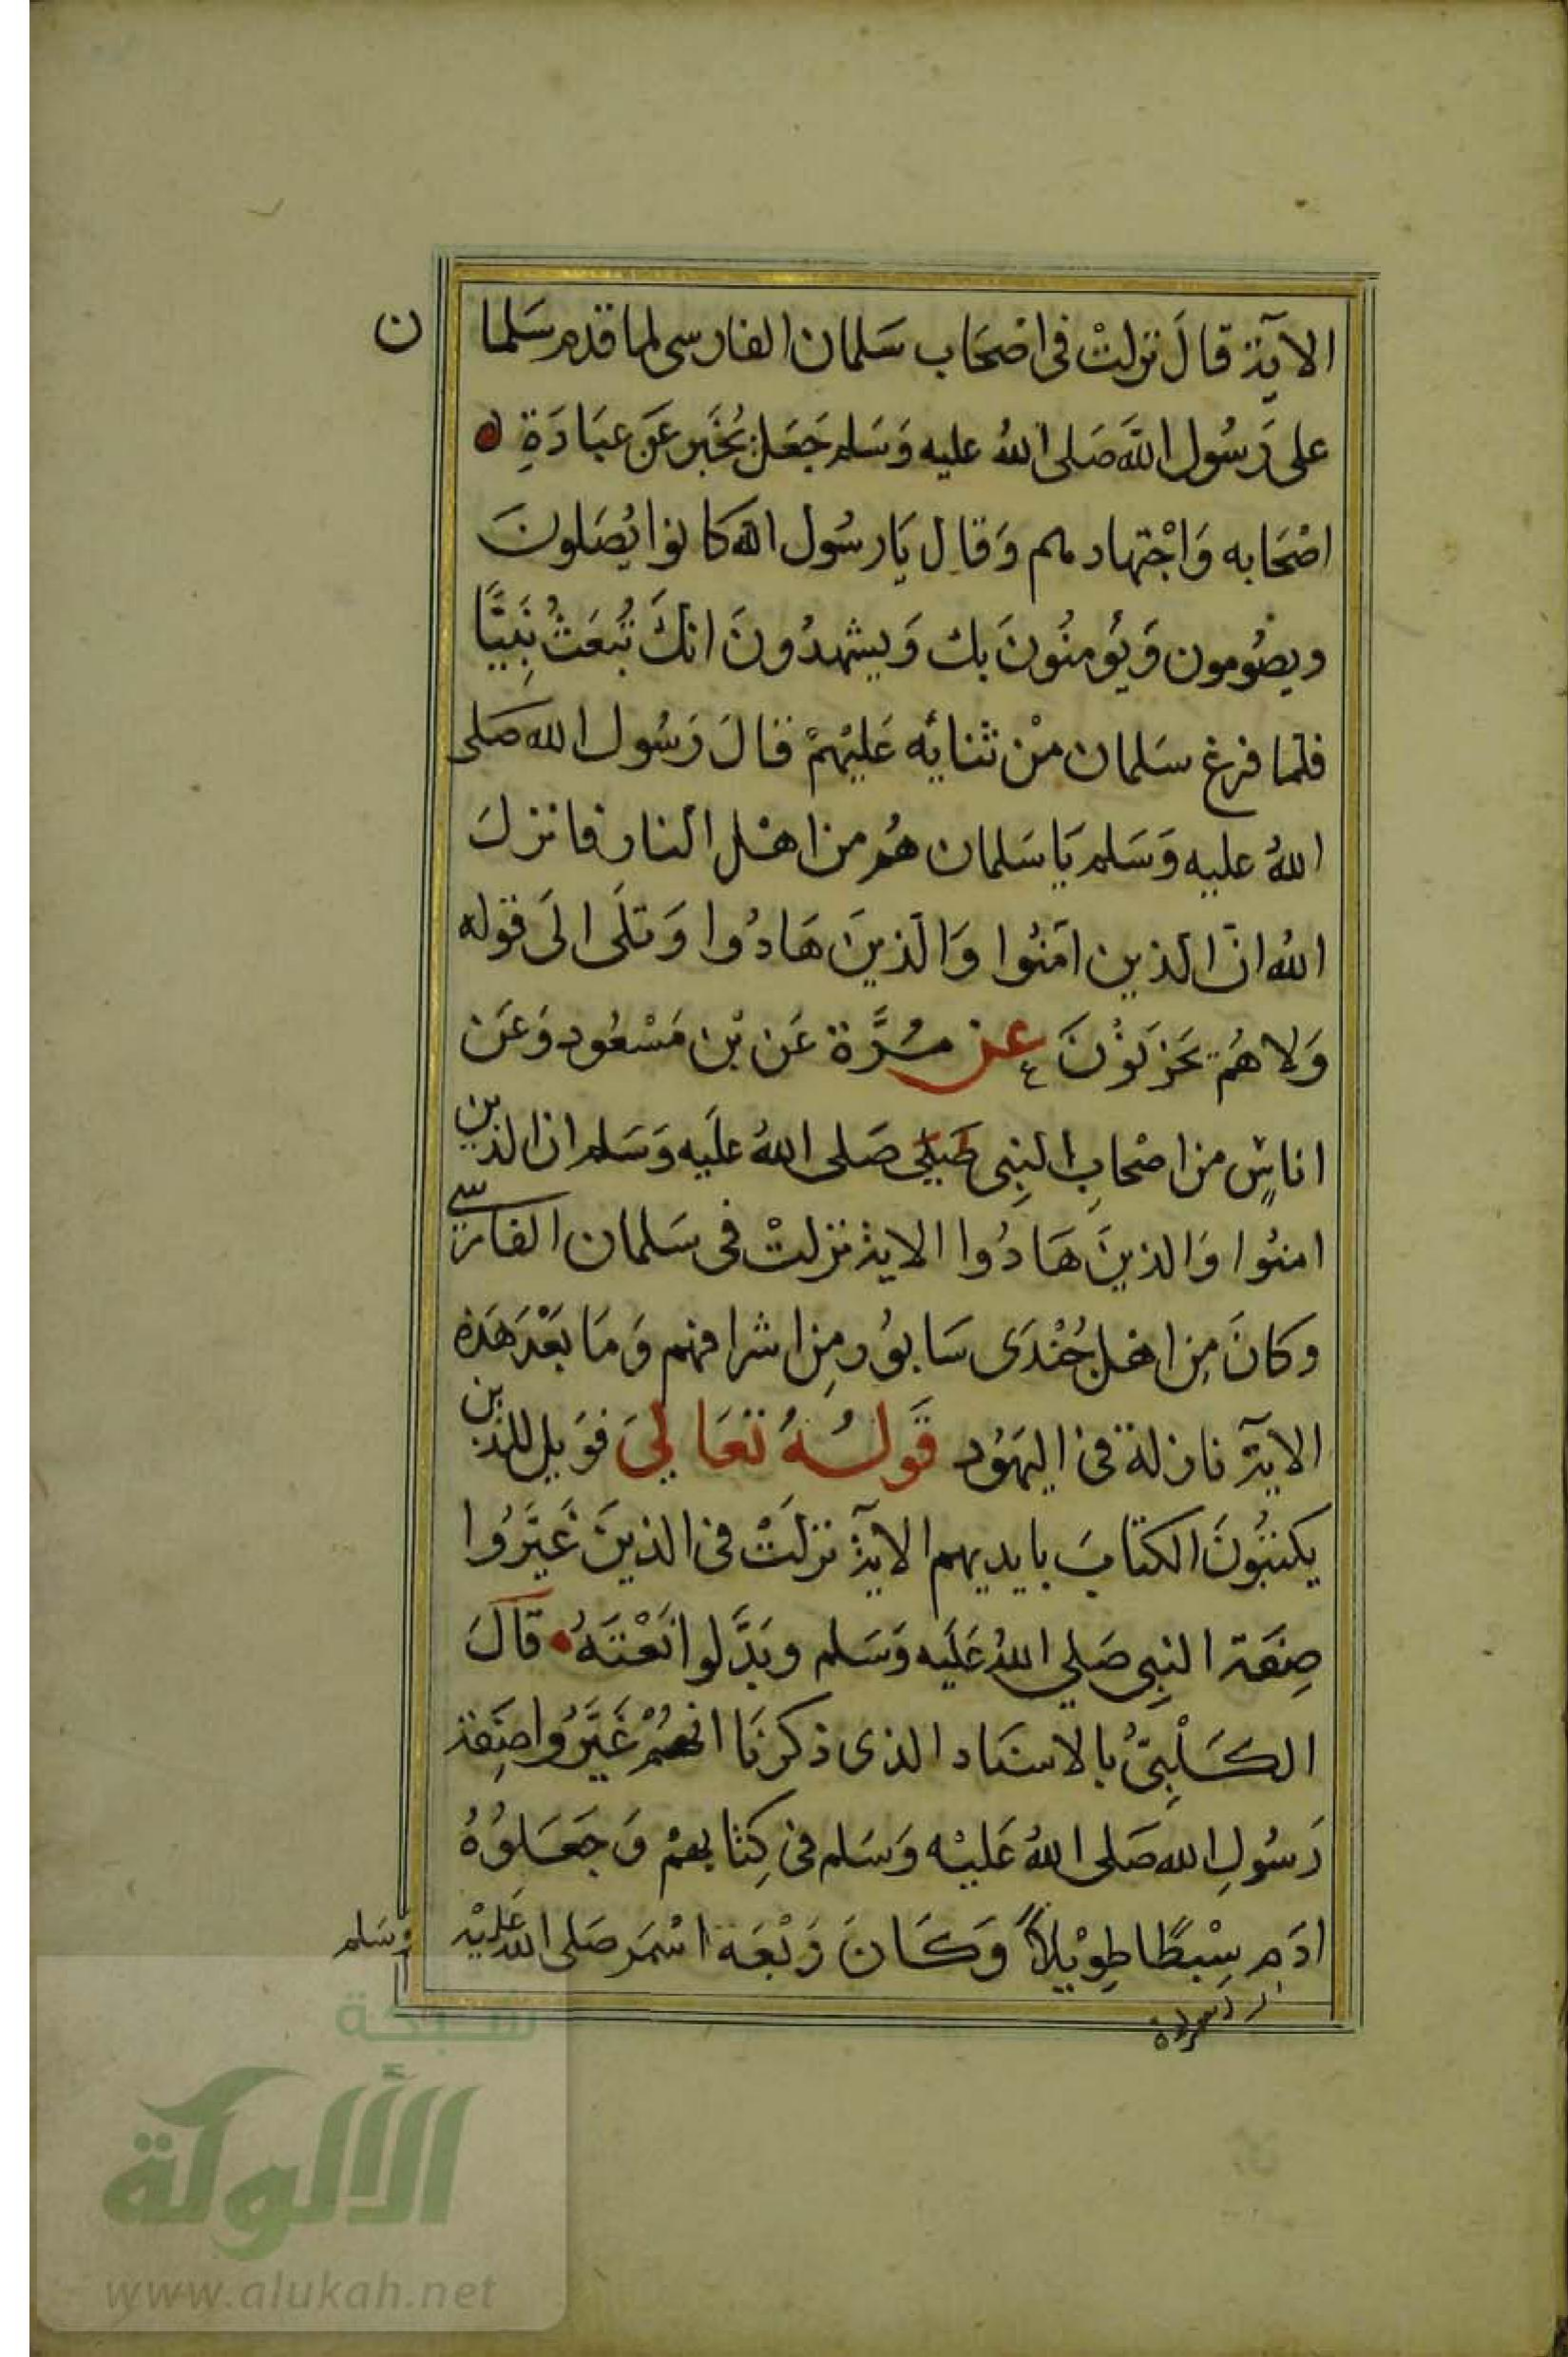 الآية قالَ نزلتْ فى اصْحَاب سَلمان الفارسى لما قدم سَلما ن
على رَسُول اللَّه صَلى اللهُ عليه وَسَلم جَعَل يُخبَر عَن عبَادَةِ
اصْحَابه وَاجْتهادهم وَقال يَا رسُول الله كانوا يُصَلونَ
ويصُومون وَيُومنُونَ بك وَيشهدُونَ انكَ تُبعَثُ نَبِيًّا
فلمّا فرغ سَلمان منْ ثنايه عَليْهمْ قالَ رَسُول الله صَلى
اللهُ عليه وَسَلم يَا سَلمان هُم من اهْل النار فانزلَ
اللهُ انّ الذين آمنُوا وَالذينَ هَادُوا وَتلَى الَى قوله
وَلا هُمْ يَحزَنُونَ عن مُرَّة عَن بْن مَسْعُود وَعَن
اناسٍ من اصْحابِ النبِى صَلى اللهُ علَيه وَسَلم ان الذين
امنُوا وَالذينَ هَادُوا الاية نزلتْ فى سَلمان الفارسي
وكانَ مِن اهل جُنْدَى سَابُور مِن اشرافهم وَمَا بَعْدَ هَذه
الآية نازلة فى اليَهُود قَولُهُ تَعَالَي فوَيل للذين
يكتبُونَ الكتابَ بايديهم الآية نزلَتْ فى الذينَ غَيَّرُوا
صِفَة النبِى صَلي اللهُ عَلَيه وَسَلم وبَدَّلوا نَعْتَهُ قالَ
الكَلْبِىُّ بالاسنَاد الذى ذكرنَا انهُمْ غَيَّرُوا صِفة
رَسُولِ الله صَلى اللهُ عَليْه وَسَلم فى كِتابهمْ وَجَعَلوُهُ
ادَم سِبْطًا طِوْيلاً وَكَانَ رَبْعَة اسْمَر صَلى الله عَليْه وسَلم
شبكة
الألوكة
www.alukah.net